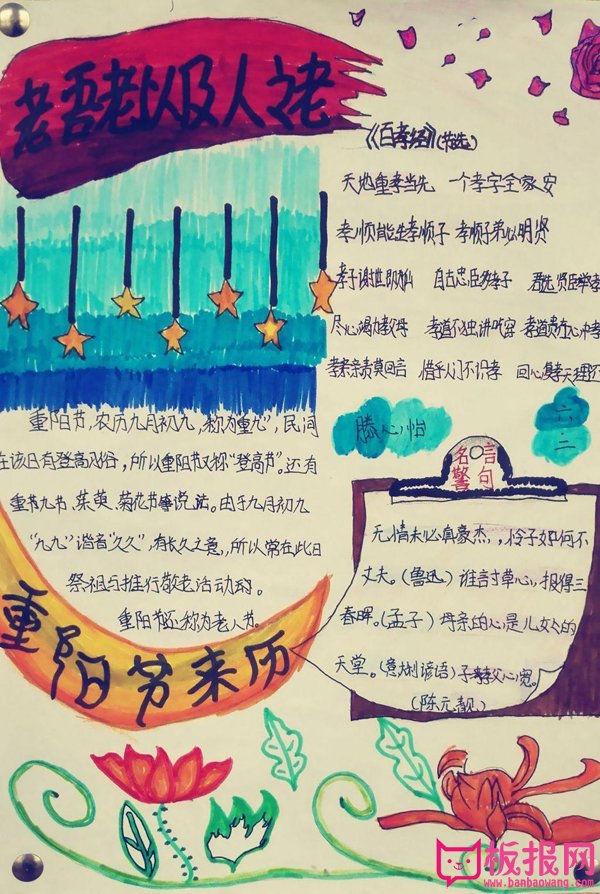 老吾老以及人之老
《百孝经》(节选)
天地重孝当先 一个孝字全家安
孝顺能生孝顺子 孝顺子弟必明贤
自古忠臣多孝子 君选贤臣举孝
尽心竭力孝父母 孝道不独讲吃穿 孝道贵在心中孝
孝亲亲责莫回言 惜乎人间不识孝 回心复孝天理还
滕心怡
六.
二
重阳节，农历九月初九，称为"重九"，民间
在该日有登高习俗，所以重阳节又称"登高节"。还有
重九节、茱萸、菊花节等说法。由于九月初九
"九九"谐音"久久"，有长久之意，所以常在此日
祭祖与推行敬老活动的。
重阳节还称为老人节。
重阳节来历
名言
警句
无情未必真豪杰，，怜子如何不
丈夫。(鲁迅) 谁言寸草心，报得三
春晖。(孟子) 母亲的心是儿女的
天堂。(意大利谚语) 子孝父心宽。
(陈元靓)
板报网
www.banbaowang.com